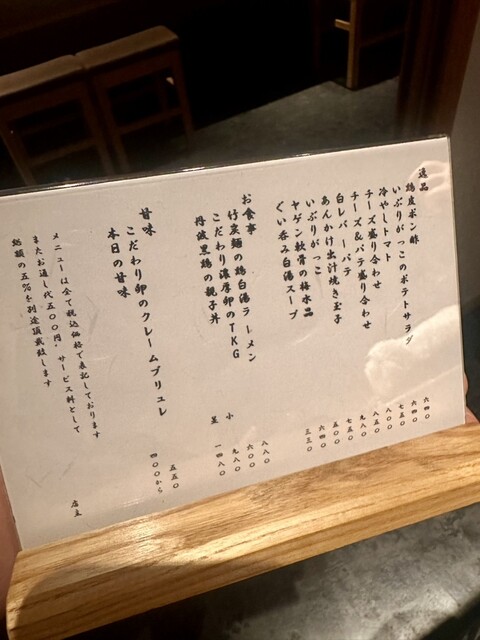 逸品
鶏皮ポン酢 六四〇
いぶりがっこのポテトサラダ 六四〇
冷やしトマト 七五〇
チーズ盛り合わせ 八〇〇
チーズ&パテ盛り合わせ 八五〇
白レバーパテ 九八〇
あんかけ出汁焼き玉子 七五〇
いぶりがっこ 五〇〇
ヤゲン軟骨の梅水晶 六四〇
ぐい呑み白湯スープ 三三〇
お食事
竹炭麺の鶏白湯ラーメン 八八〇
こだわり濃厚卵のTKG 六〇〇
丹波黒鶏の親子丼 小 九八〇
並 一四八〇
甘味
こだわり卵のクレームブリュレ 五五〇
本日の甘味 四〇〇から
メニューは全て税込価格で表記しております
また、お通し代五〇〇円、サービス料として
総額の五%を別途頂戴致します
店主